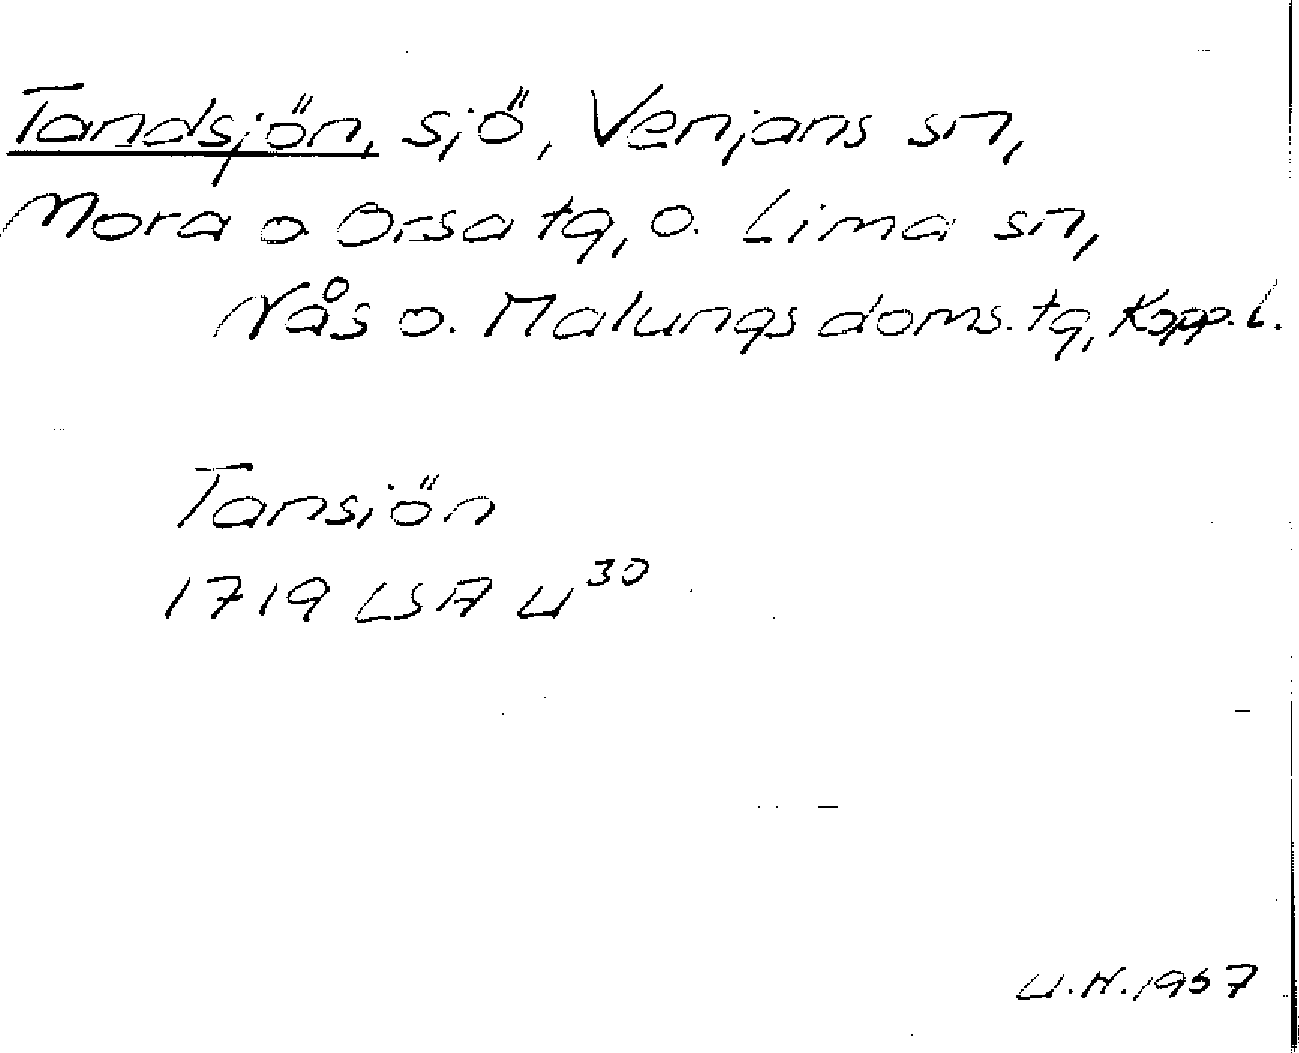 Tandsjön, sjö, Venjans sn,
Mora o Orsa tg, o. Lima sn,
Nås o. Malungs doms. tg, Kopp. l.
Tansiön
1719 LSA U30
U.N. 1957